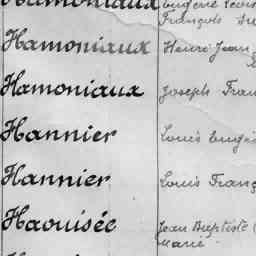 Hamoniaux Eugène
François
Hamoniaux Henri Jean
Hamoniaux Joseph Fran
Hannier Louis Eugè
Hannier Louis Franç
Haouisée Jean Baptiste
Marie